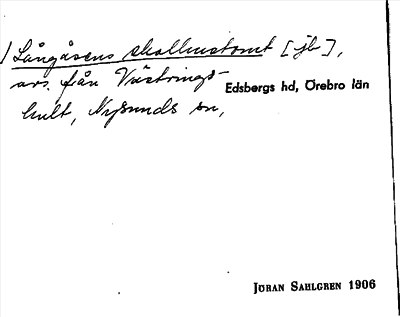 Långåsens skolhustomt [jb],
avs. från Västrings-
hult, Nysunds sn,
Edsbergs hd, Örebro län
JÖRAN SAHLGREN 1906